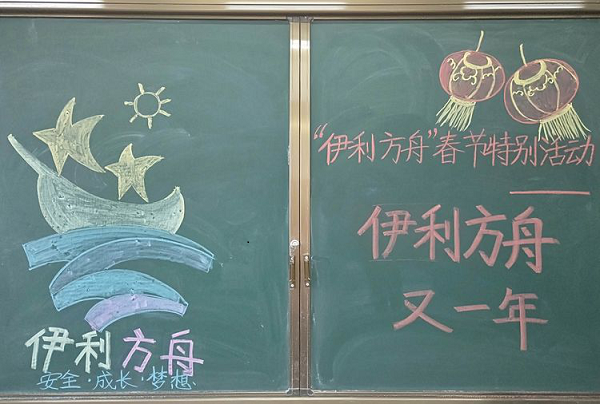 伊利方舟
安全·成长·梦想
“伊利方舟”春节特别活动
伊利方舟
又一年